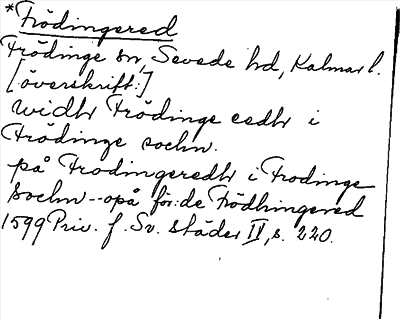 *Frödingered
Frödinge sn, Sevede hd, Kalmar l.
[överskrift:]
widhr Frödinge eedhr i
Frödinge sochn.
på Frodingeredhr i Frodinge
sochn--opå för:de Frödhingered
1599 Priv. f. Sv. städer II, s. 220.